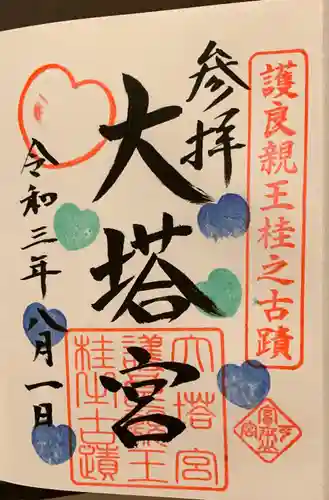 護良親王桂之古蹟
参拝
大塔宮
令和三年八月一日
大塔宮
護良親王
桂之古蹟